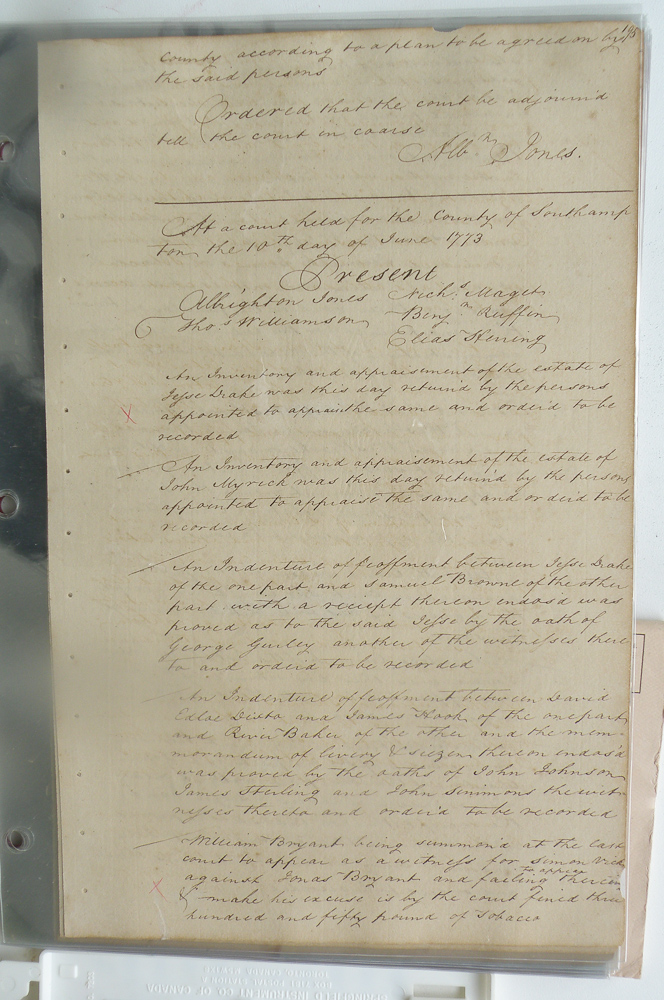 195
County according to a plan to be agreed on by
the said persons
Ordered that the court be adjournd
till the court in coarse
Alb.n Jones.
At a court held for the County of Southamp
ton the 10.th day of June 1773
Present
Albrighton Jones Nich.s Maget
Tho.s Williamson Benj.n Ruffin
Elias Herring
An Inventory and appraisement of the estate of
Jesse Drake was this day returnd by the persons
appointed to appraise the same and orderd to be
recorded
An Inventory and appraisement of the estate of
John Myrick was this day returnd by the persons
appointed to appraise the same and orderd to be
recorded
An Indenture of feoffment between Jesse Drake
of the one part and Samuel Browne of the other
part with a reciept thereon endosd was
proved as to the said Jesse by the oath of
George Gurley another of the witnesses there
to and orderd to be recorded
An Indenture of feoffment between David
Edloe Ditto and James Hook of the one part
and River Baker of the other and the mem-
morandum of livery & siezen thereon endosd
was proved by the oaths of John Johnson
James Sterling and John Simmons the wit
nesses thereto and orderd to be recorded
William Bryant being summond at the last
court to appear as a witness for Simon
against Jonas Bryant and failing to appear therein
make his excuse is by the court fined three
hundred and fifty pound of Tobacco
SPRINGFIELD INSTRUMENT CO OF CANADA
TORONTO CANADA